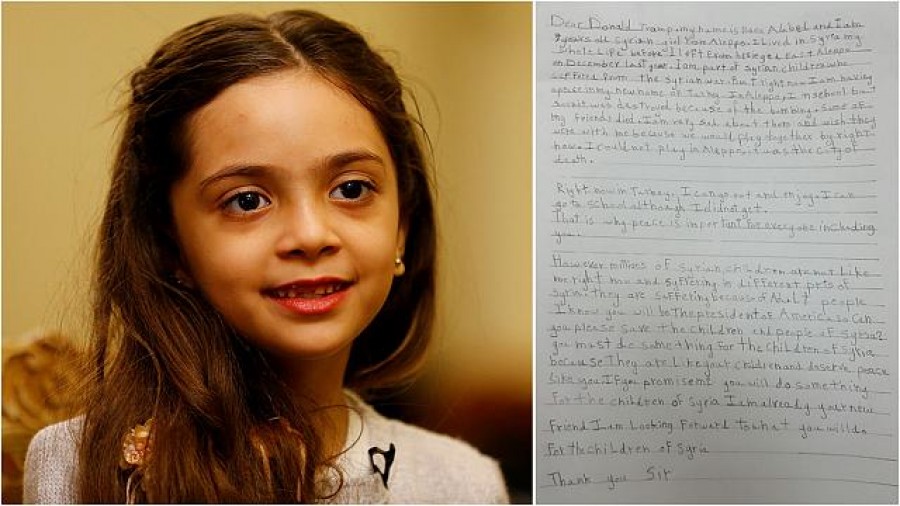 Dear Donald Tramp, my name is Bana Alabed and I am
7 years old Syrian girl from Aleppo. I lived in Syria my
whole life before I left from besieged East Aleppo
on December last year. I am part of Syrian children who
suffered from the Syrian war. But right now I am having
a peace in my new home of Turkey. In Aleppo, I in school but
soon it was destroyed because of the bombing. Some of
my friends died. I am very sad about them and wish they
were with me because we would play together by right
now. I could not play in Aleppo, it was the city of
death.
Right now in Turkey, I can go out and enjoy. I can
go to school although I didn't yet.
That is why peace is important for everyone including
you.
However millions of Syrian children are not like
me right now and suffering in different parts of
Syria. they are suffering because of Adult people
I know you will be the president of America, so can
you please save the children and people of Syria?
you must do something for the children of Syria
because They are like your children and deserve peace
like you. If you promise me you will do something
for the children of Syria I am already your new
friend. I am Looking Forward to what you will do
for the children of Syria
Thank you Sir